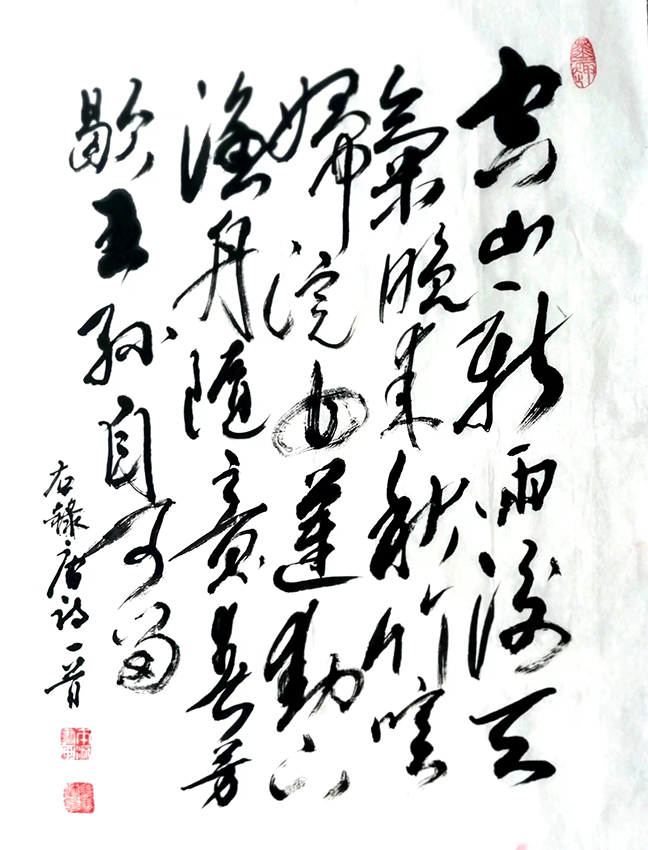 空山新雨後天
氣晚來秋竹喧
歸浣女蓮動下
漁舟隨意春芳
歇王孫自可留
右錄唐詩一首